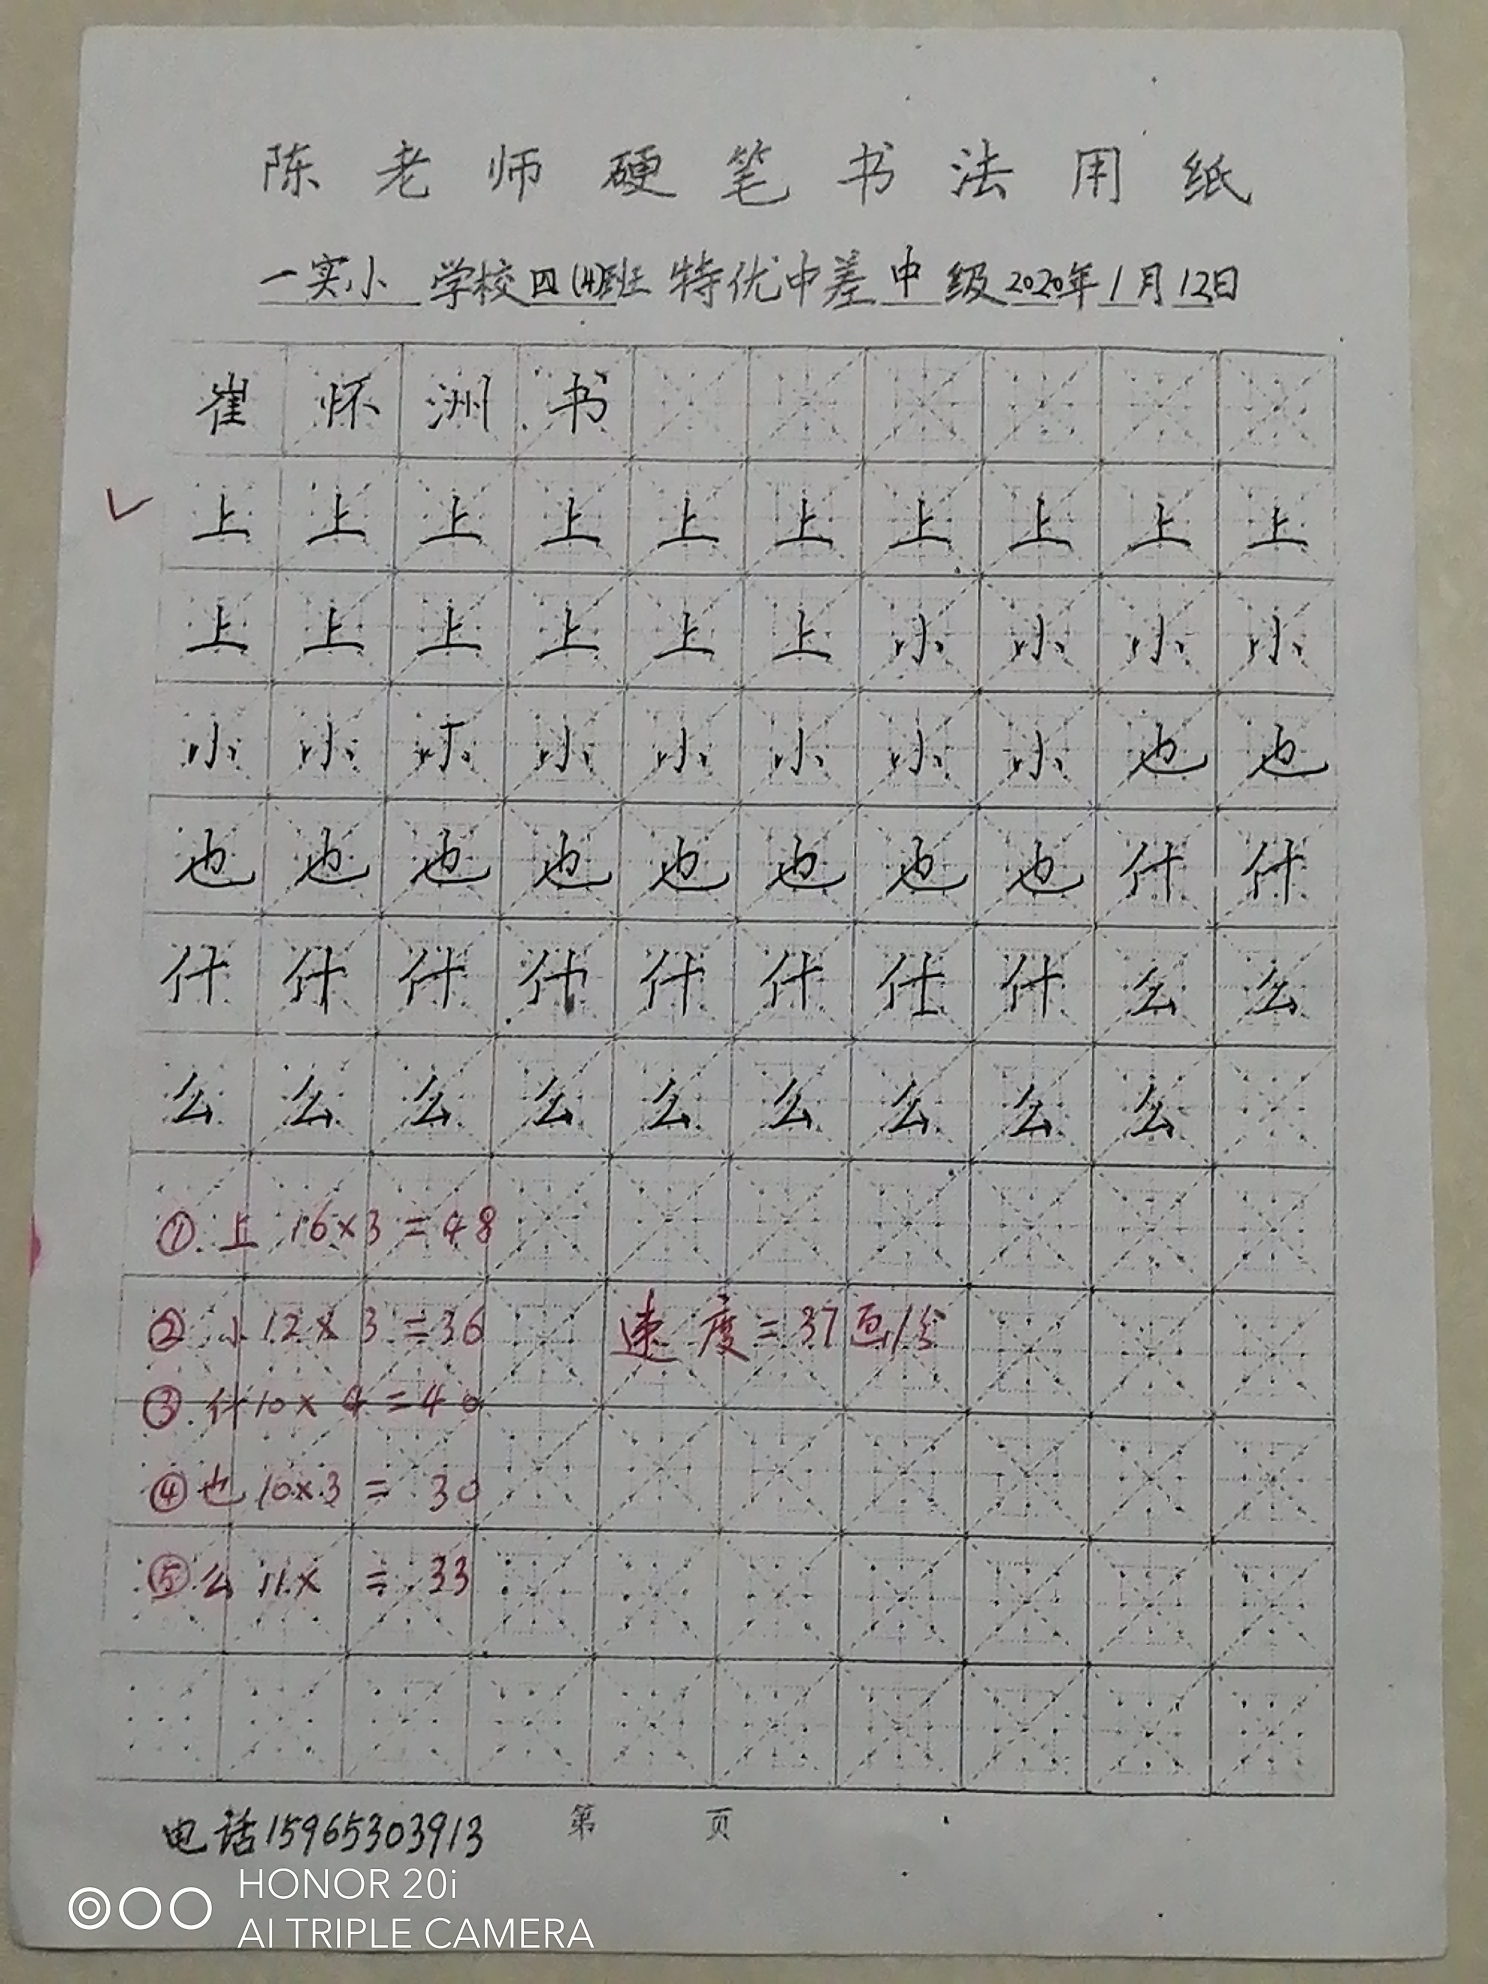 陈老师硬笔书法用纸
一实小 学校四(4)班 特优中差 中 级 2020年1月12日
崔怀洲书
上上上上上上上上上上
上上上上上上小小小小
小小小小小小小小也也
也也也也也也也也什什
什什什什什什什什么么
么么么么么么么么么
① 上 16×3=48
② 小 12×3=36
速度=37画/分
③ 什 10×4=40
④ 也 10×3=30
⑤ 么 11× =33
电话15965303913 第 页
HONOR 20i
AI TRIPLE CAMERA